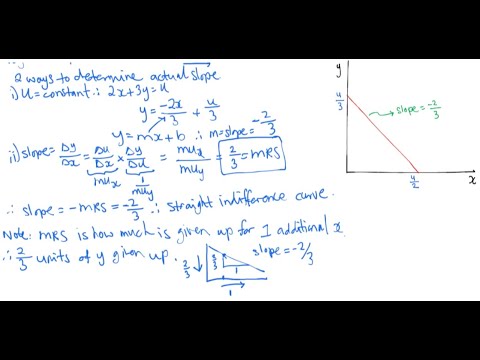 2 ways to determine actual slope
i) U = constant ∴ 2x+3y=u
y = -2x/3 + u/3
y = mx + b ∴ m=slope = -2/3
ii) slope = Δy/Δx = Δu/Δx × Δy/Δu = mux/muy = 2/3 = MRS
mux 1/muy
∴ slope = -MRS = -2/3 ∴ straight indifference curve.
Note: MRS is how much is given up for 1 additional x.
∴ 2/3 units of y given up.
2/3 ↓ 2/3 1 slope = -2/3
1
y
u/3
slope = -2/3
u/2
x